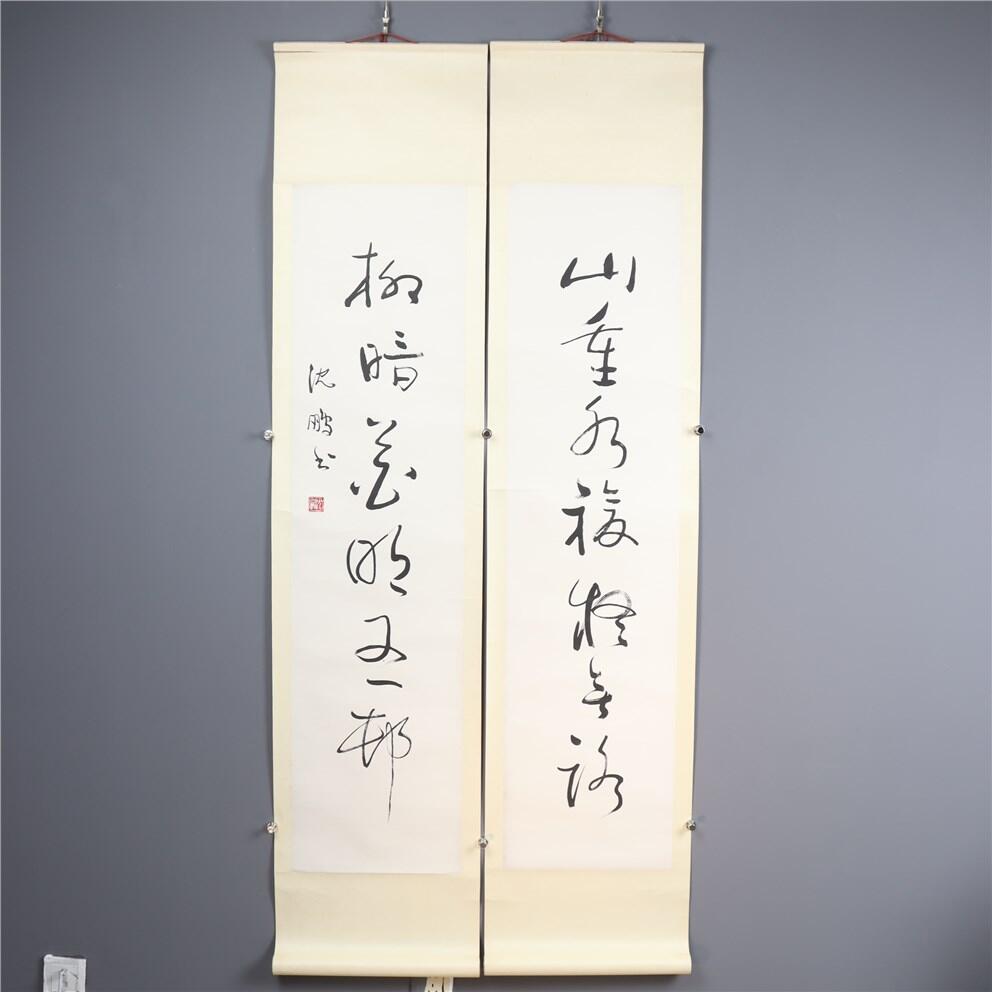 山重水複疑無路
柳暗花明又一邨
沈鵬书